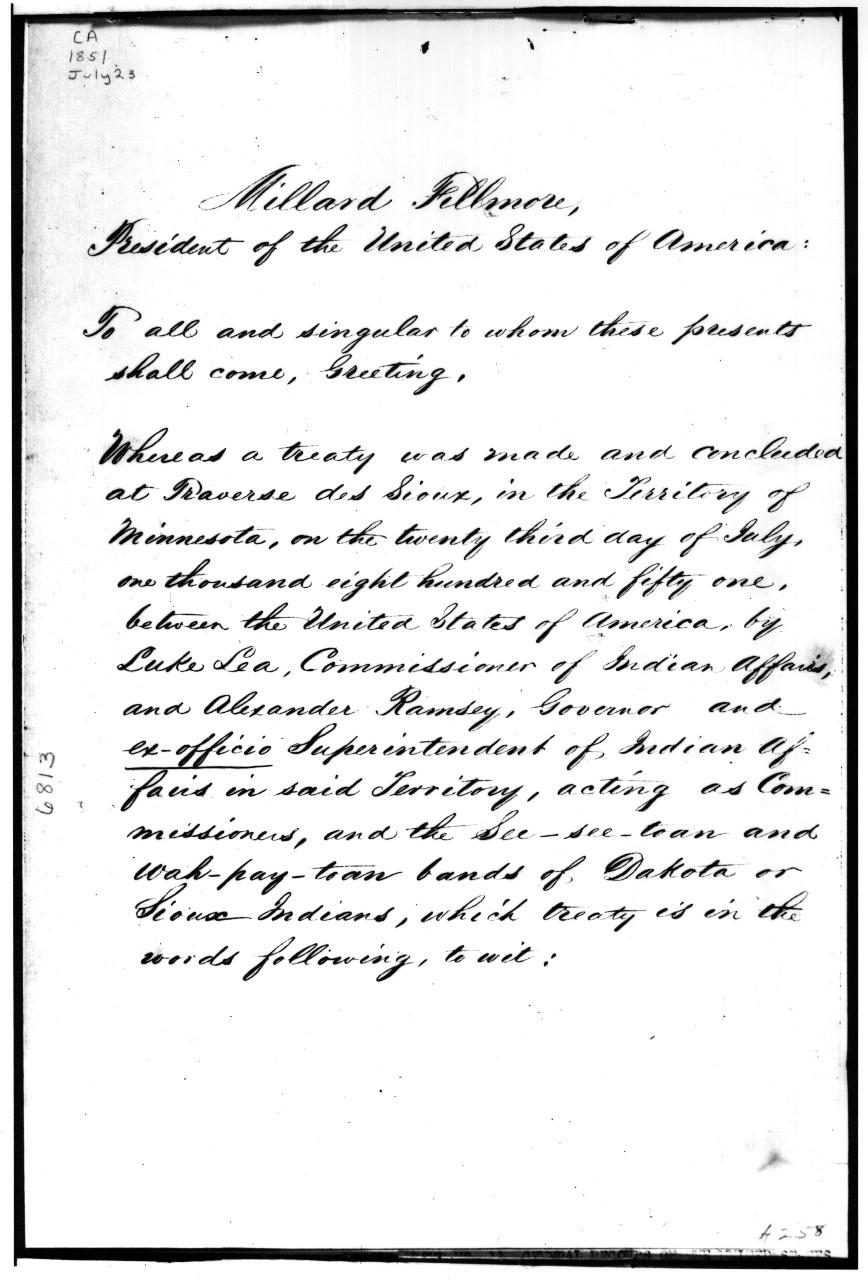 CA
1851
July 23
Millard Fillmore,
President of the United States of America:
To all and singular to whom these presents
shall come, Greeting.
Whereas a treaty was made and concluded
at Traverse des Sioux, in the Territory of
Minnesota, on the twenty third day of July,
one thousand eight hundred and fifty one,
between the United States of America, by
Luke Lea, Commissioner of Indian Affairs,
and Alexander Ramsey, Governor and
ex-officio Superintendent of Indian Af=
fairs in said Territory, acting as Com=
missioners, and the See-see-toan and
Wah-pay-toan bands of Dakota or
Sioux Indians, which treaty is in the
words following, to wit:
6813
A258